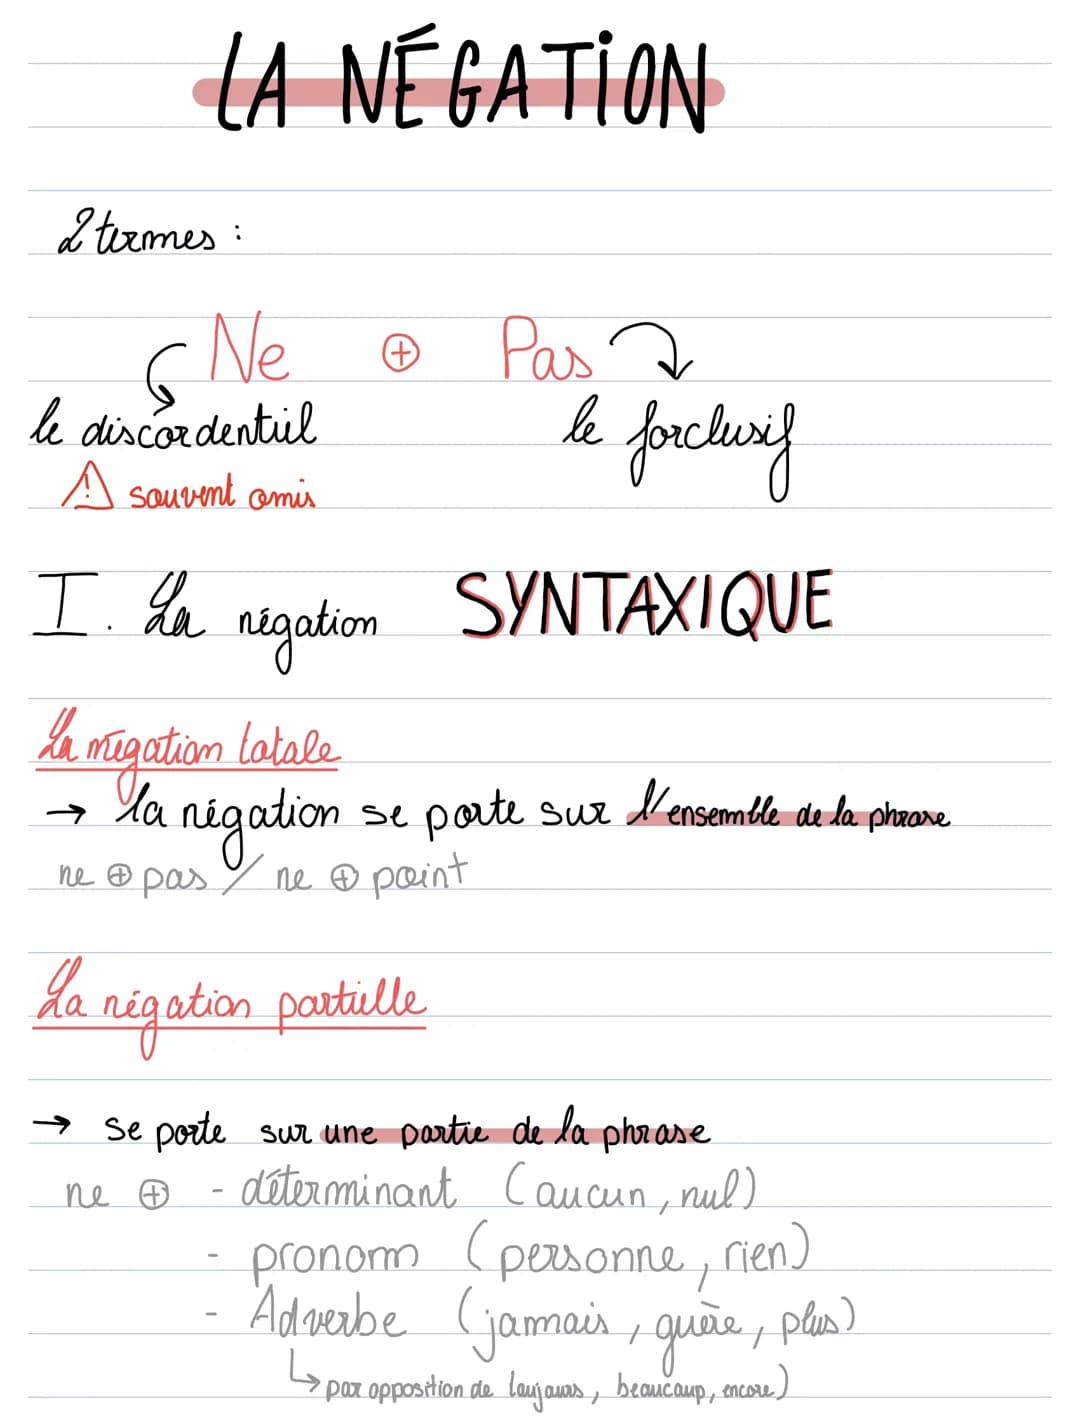 LA NÉGATION
2 termes :
Ne ⊕ Pas
le discordentiel le forclusif
⚠ souvent omis
I. La négation SYNTAXIQUE
La négation totale
→ la négation se porte sur l'ensemble de la phrase
ne ⊕ pas / ne ⊕ point
La négation partielle
→ se porte sur une partie de la phrase
ne ⊕ - déterminant (aucun, nul)
- pronom (personne, rien)
- Adverbe (jamais, guère, plus)
↳ par opposition de toujours, beaucoup, encore)